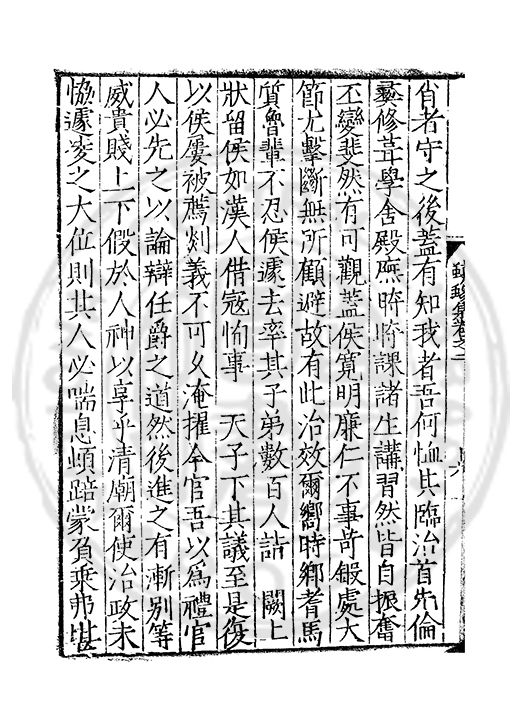 肖者守之後蓋有知我者吾何恤其臨治首先倫
彝修葺學舍殿廡時時課諸生講習然皆自振奮
丕變斐然有可觀蓋侯寬明廉仁不事苛鍛處大
節尤擊斷無所顧避故有此治效爾嚮時鄉耆馬
質魯輩不忍侯遽去率其子弟數百人詣 闕上
狀留侯如漢人借寇恂事 天子下其議至是復
以侯屢被薦剡義不可久淹擢今官吾以為禮官
人必先之以論辯任爵之道然後進之有漸別等
威貴賤上下假於人神以享乎清廟爾使治政未
恊遽麥之大位則其人必喘息頓踣蒙負乘弗堪
集卷之二